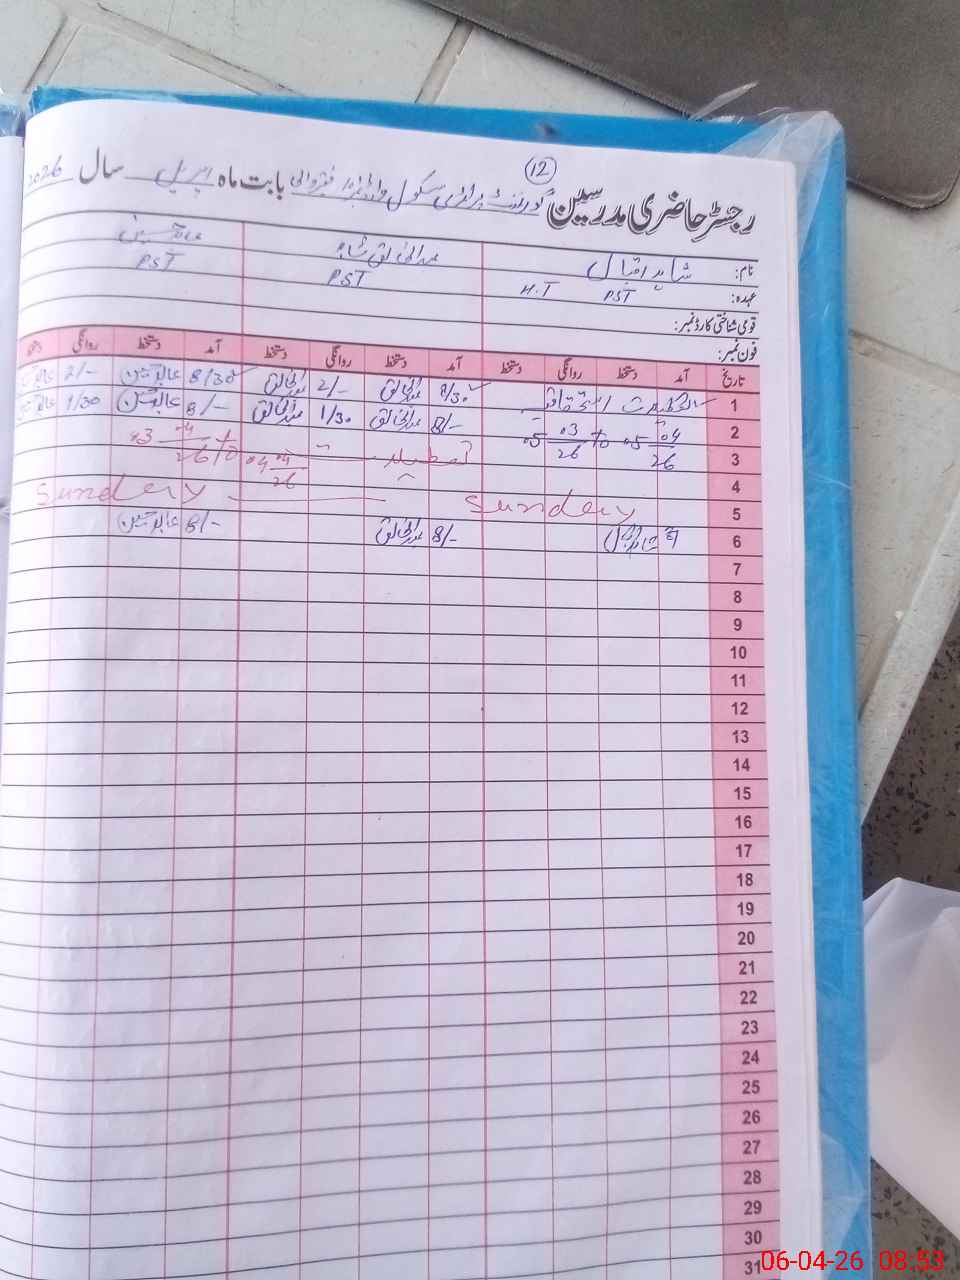 12
رجسٹر حاضری مدرسین گورنمنٹ پرائمری سکول بابت ماہ اپریل سال 2026
نام: شاہد اقبال عبدالخالق شاہ عابد حسین
عہدہ: PST H.T PST PST
قومی شناختی کارڈ نمبر:
فون نمبر:
تاریخ آمد دستخط روانگی دستخط آمد دستخط روانگی دستخط آمد دستخط روانگی دستخط
1 رخصت اتفاقیہ 8/30 عبدالخالق 2/- عبدالخالق 8/30 عابد حسین 2/- عابد حسین
2 04 05 to 03 05 8/- عبدالخالق 1/30 عبدالخالق 8/- عابد حسین 1/30 عابد حسین
3 26 26 تعطیلات 04 04 to 04 03
4 26 26
5 Sundery Sundery
6 شاہد اقبال 8/- عبدالخالق 8/- عابد حسین
7
8
9
10
11
12
13
14
15
16
17
18
19
20
21
22
23
24
25
26
27
28
29
30
31
06-04-26 08:53